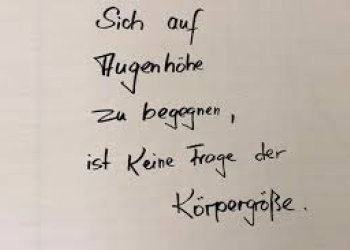 Sich auf
Augenhöhe
zu begegnen,
ist Keine Frage der
Körpergöße.